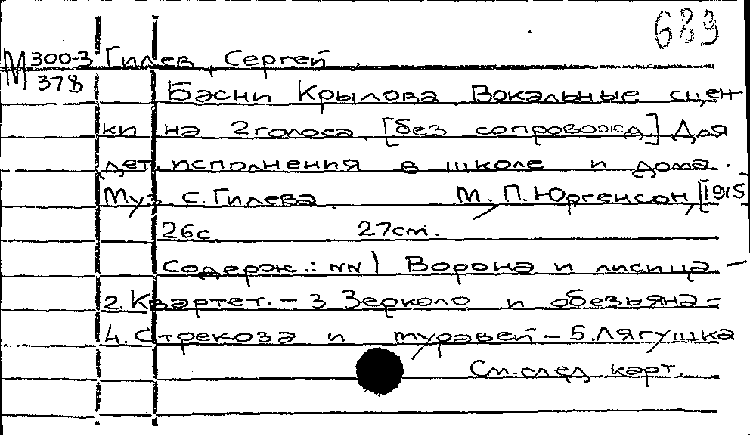 689
М 300-3 Гилев, Сергей
378
Басни Крылова. Вокальные сцен
ки на 2 голоса. [без сопровожд.] Для
дет. исполнения в школе и дома.
Муз. С. Гилева. М., П. Юргенсон, [1915]
26с. 27см.
Содерж.: NN 1 Ворона и лисица –
2. Квартет. – 3. Зеркало и обезьяна –
4. Стрекоза и муравей – 5. Лягушка
См. след. карт.